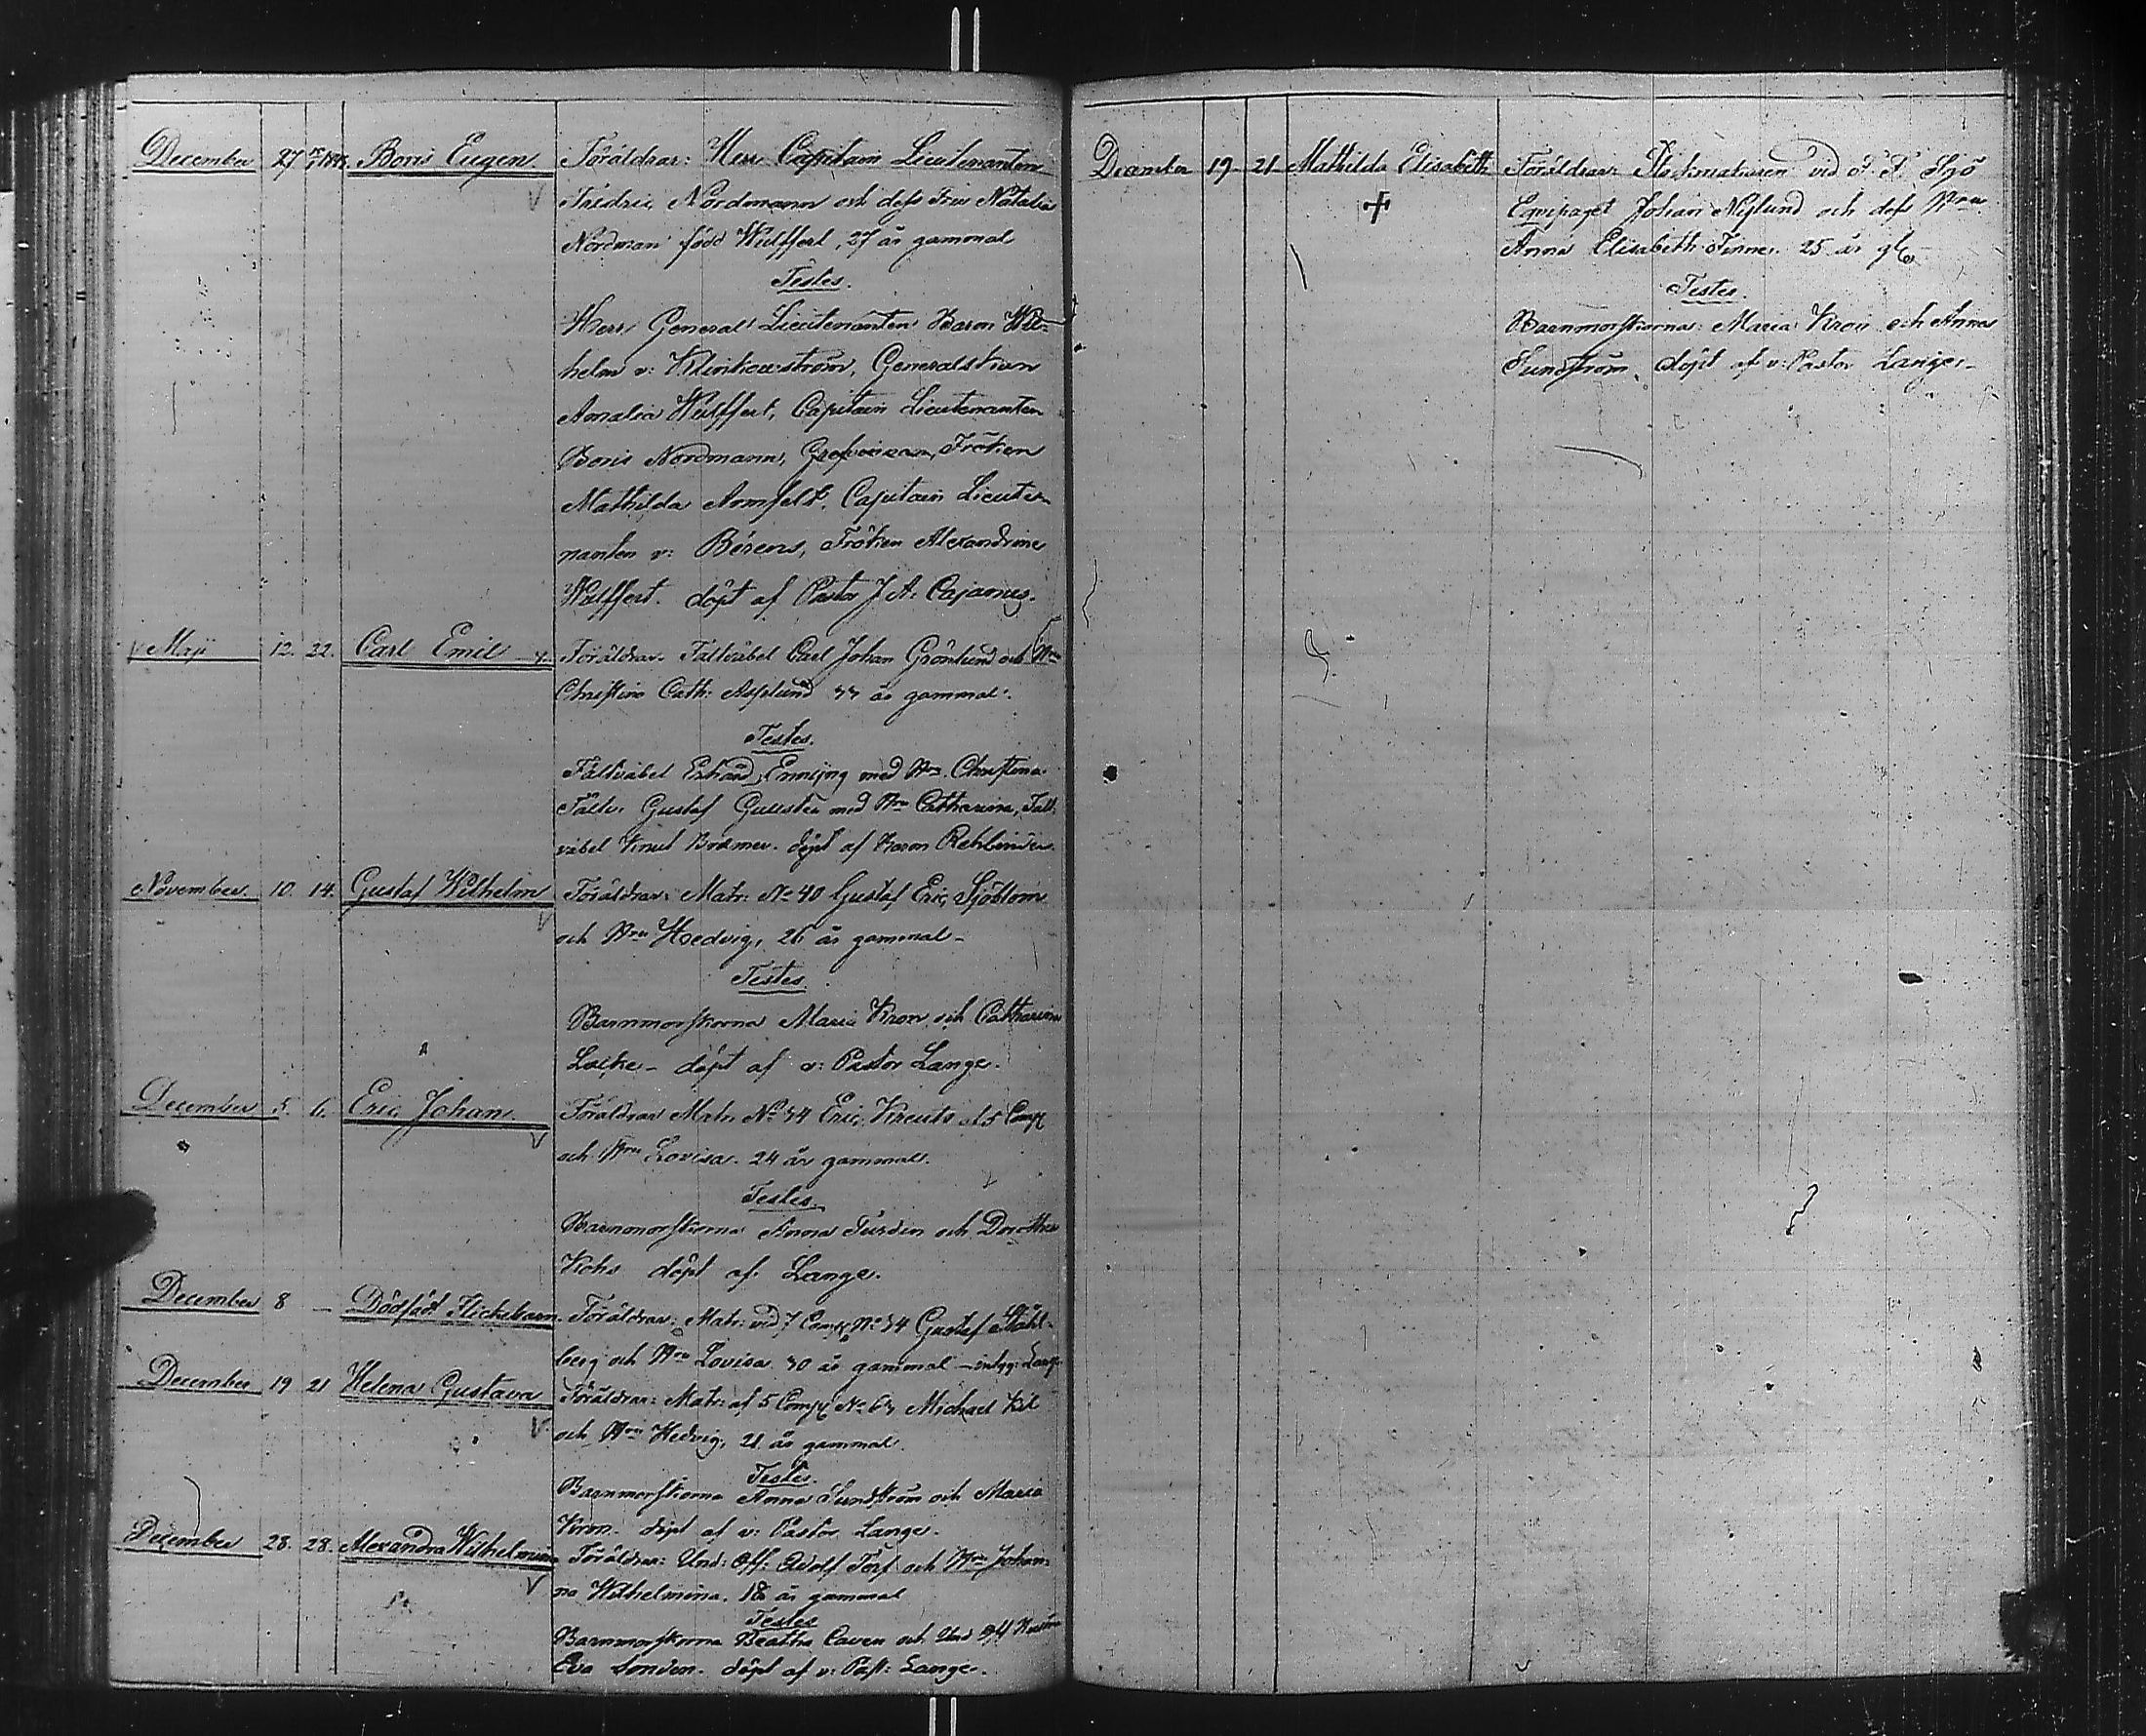 December 27 Boris Eugen Föräldrar: Herr Capitain Lieutenanten
Fredric Nordmann och dess Fru Natalia
Nordman född Wulffert, 27 år gammal
Testes.
Herr General Lieutenanten Baron Wil-
helm v: Klinkowström, Generalskan
Amalia Wulffert, Capitain Lieutenanten
Boris Nordmann, Grefvinnan, Fröken
Mathilda Armfelt, Capitain Lieute-
nanten v: Berens, Fröken Alexandrine
Wulffert. döpt af Pastor J. A. Cajanus.
Maji 12. 22. Carl Emil Föräldrar. Fältväbel Carl Johan Grönlund och Hru
Christina Cath: Asplund 33 år gammal.
Testes.
Fältväbel Erhard Enmyng med Hru Christina.
Fältv. Gustaf Gullsten med Hru Catharina, Fält-
väbel Knut Bremer. döpt af Baron Rehbinder.
November 10. 14. Gustaf Wilhelm Föräldrar: Matr: No 40 Gustaf Eric Sjöblom
och Hru Hedvig, 26 år gammal -
Testes
Barnmorskorna Maria Kron och Catharina
Locke - döpt af v: Pastor Lange.
December 5. 6. Eric Johan. Föräldrar Matr. No 34 Eric Kreuts af 5 Comp
och Hru Lovisa. 24 år gammal.
Testes.
Barnmorskorna Anna Turdin och Dorothea
Kohs döpt af Lange.
December 8 - Dödfödt Flickebarn. Föräldrar: Matr: vid 7 Comp No 34 Gustaf Ståhl-
berg och Hru Lovisa 30 år gammal - intyg: Lange.
December 19 21 Helena Gustava Föräldrar: Matr: af 5 Comp No 63 Michael Kil
och Hru Hedvig, 21 år gammal.
Testes.
Barnmorskorna Anna Sundström och Maria
Kron. döpt af v: Pastor Lange.
December 28. 28. Alexandra Wilhelmina Föräldrar: Und: Off: Adolf Torf och Hru Johan-
na Wilhelmina. 18 år gammal
Testes
Barnmorskorna Beatha Caven och Und Off
Eva Sonden. döpt af v: Past: Lange.
December 19- 21- Mathilda Elisabeth Föräldrar: vid Sjö
Equipaget Johan Nylund och dess Hru
Anna Elisabeth Finne. 25 år
Testes.
Barnmorskorna: Maria Kron och Anna
Sundström, döpt af v: Pastor Lange -